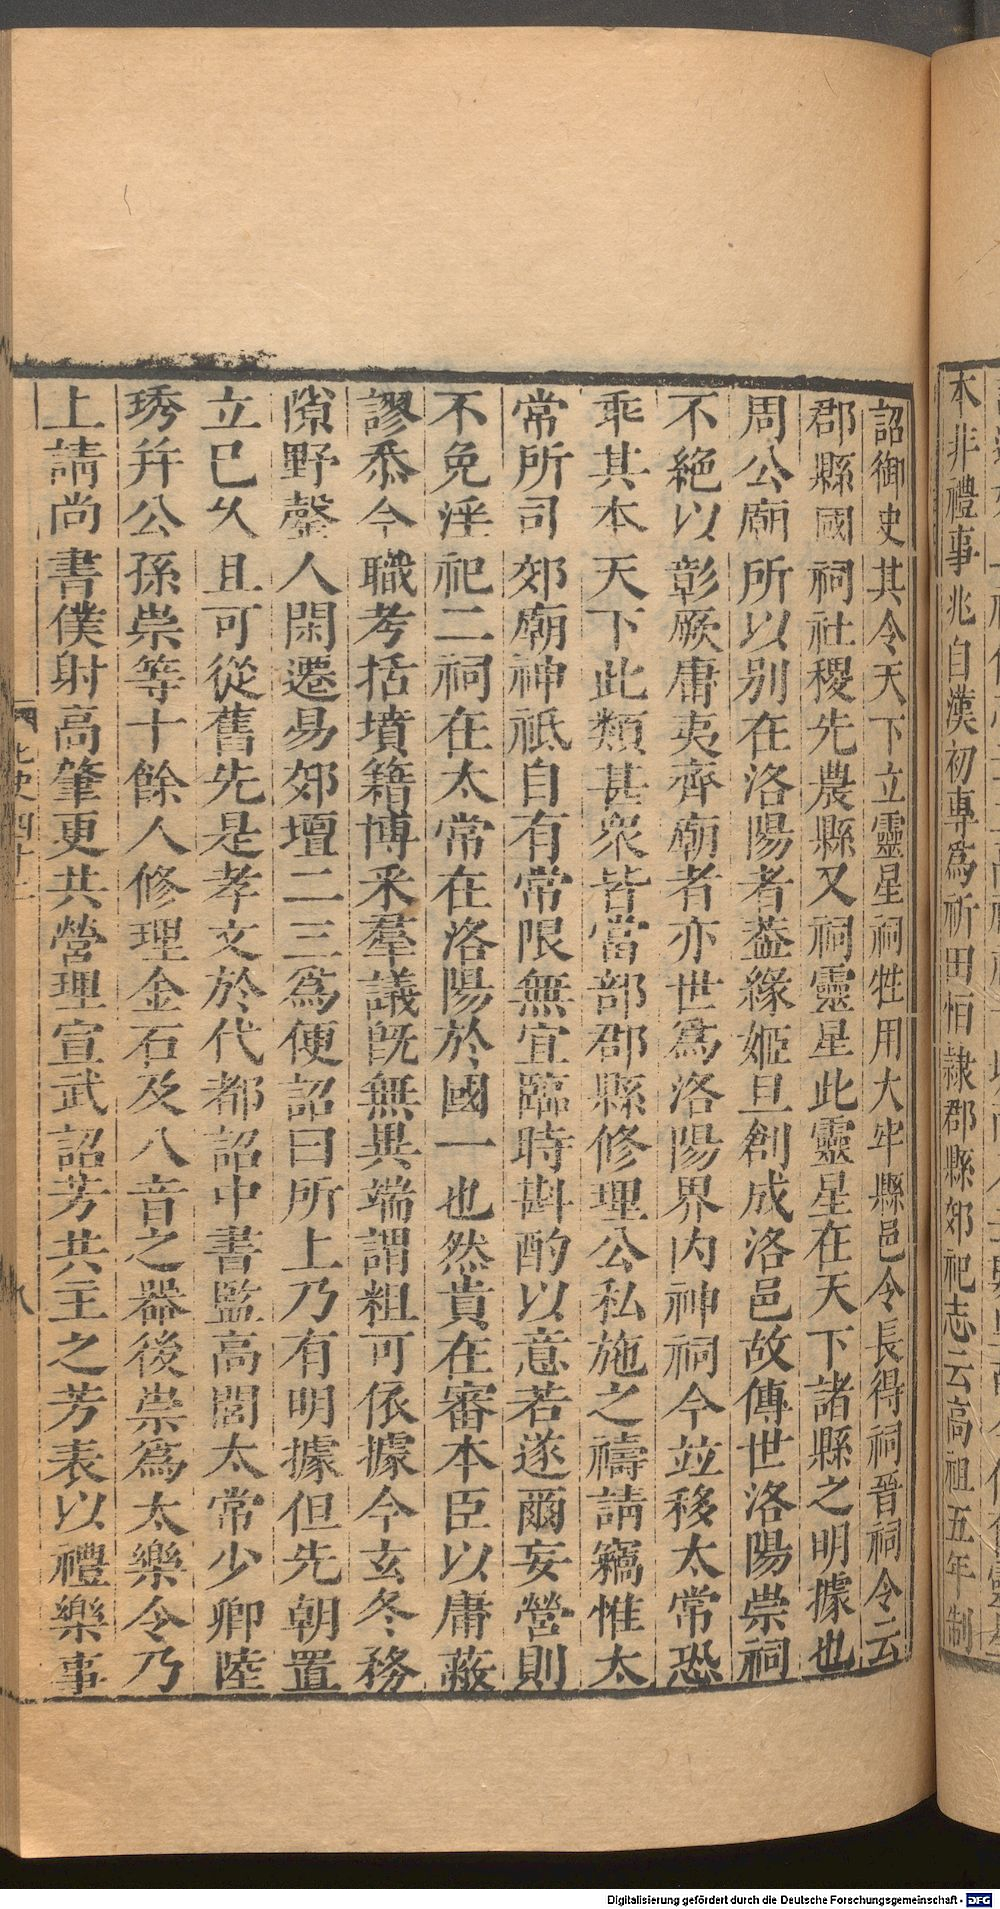 本非禮事兆自漢初專爲祈田恒隸郡縣郊祀志云高祖五年制
詔御史其令天下立靈星祠牲用大牢縣邑令長得祠晉祠令云
郡縣國祠社稷先農縣又祠靈星此靈星在天下諸縣之明據也
周公廟所以别在洛陽者葢緣姬旦創成洛邑故傳世洛陽崇祠
不絶以彰厥庸夷齊廟者亦世爲洛陽界内神祠今竝移太常恐
乖其本天下此類甚衆皆當部郡縣修理公私施之禱請竊惟太
常所司郊廟神祇自有常限無宜臨時斟酌以意若遂爾妄營則
不免淫祀二祠在太常在洛陽於國一也然貴在審本臣以庸蔽
謬忝今職考括墳籍博釆羣議旣無異端謂粗可依據今玄冬務
隙野罄人閑遷易郊壇二三爲便詔曰所上乃有明據但先朝置
立已久且可從舊先是孝文於代都詔中書監高閭太常少卿陸
琇并公孫崇等十餘人修理金石及八音之器後崇爲太樂令乃
上請尚書僕射高肇更共營理宣武詔芳共主之芳表以禮樂事
北史四十二
八
Digitalisierung gefördert durch die Deutsche Forschungsgemeinschaft - DFG